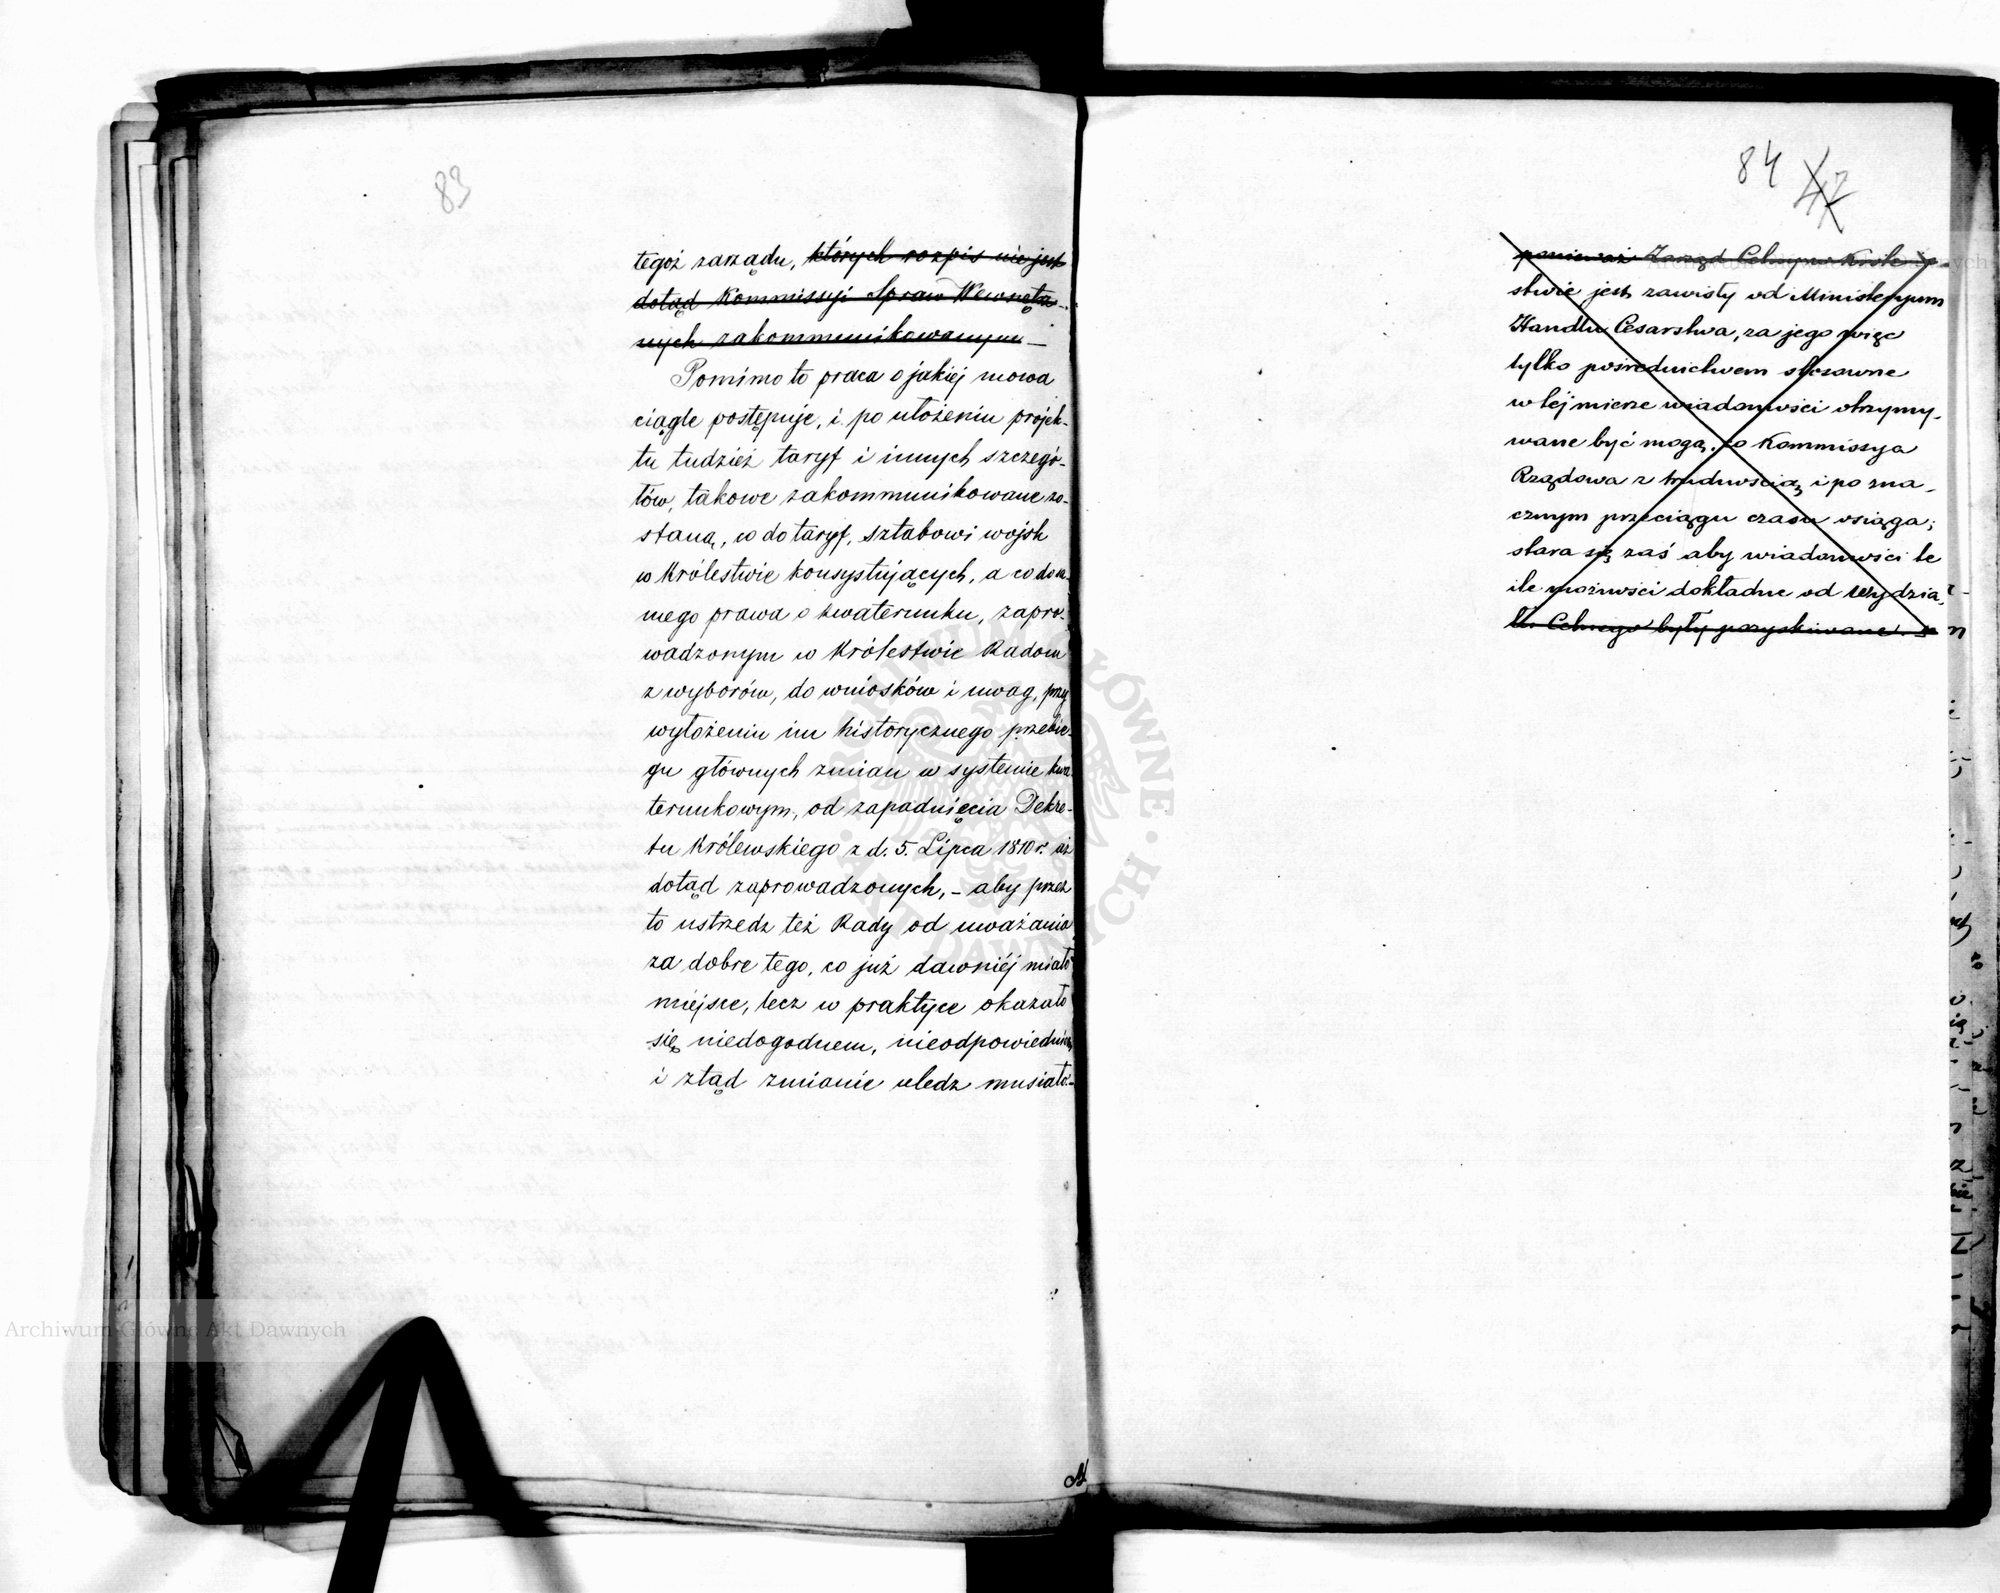 83
tegoż zarządu, których rozpis nie jest
dotąd Kommissyi Spraw Wewnętrz-
nych zakommunikowanym. —
Pomimo to praca o jakiej mowa
ciągle postępuje, i po ułożeniu projek-
tu tudzież taryf i innych szczegó-
łów, takowe zakommunikowane zo-
staną, co do taryf, sztabowi wojsk
w Królestwie konsystujących, a co do
nego prawa o kwaterunku, zapro-
wadzonym w Królestwie Radom
z wyborów, do wniosków i uwag, przy
wyłożeniu im historycznego przebie-
gu głównych zmian w systemie kwa-
terunkowym, od zapadnięcia Dekre-
tu Królewskiego z d. 5. Lipca 1810 r. aż
dotąd zaprowadzonych, – aby przez
to ustrzedz też Rady od uważania
za dobre tego, co już dawniéj miało
miejsce, lecz w praktyce okazało
się niedogodnem, nieodpowiedniem
i ztąd zmianie uledz musiało. –
84 42
ponieważ Zarząd Celny w Króle-
stwie jest zawisły od Ministeryum
Handlu Cesarstwa, za jego więc
tylko pośrednictwem stosowne
w tej mierze wiadomości otrzymy-
wane być mogą, co Kommissya
Rządowa z trudnością i po zna-
cznym przeciągu czasu osiąga;
stara się zaś aby wiadomości te
ile możności dokładne od Wydzia-
łu Celnego były pozyskiwane.
Archiwum Główne Akt Dawnych